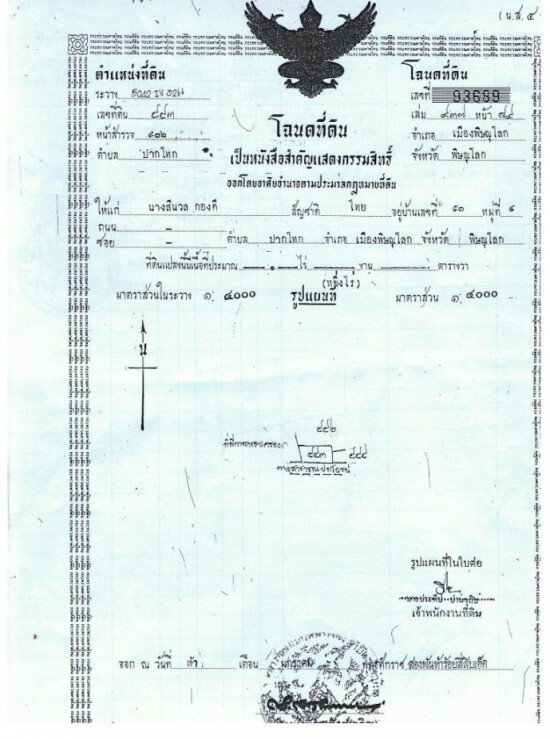 (น.ส. ๔
ตำแหน่งที่ดิน
โฉนดที่ดิน
ระวาง 5042 IV
เลขที่ 93689
เลขที่ดิน ๔๔๓
เล่ม ๙๓๗ หน้า
หน้าสำรวจ
อำเภอ เมืองพิษณุโลก
ตำบล ปากโทก
จังหวัด พิษณุโลก
โฉนดที่ดิน
เป็นหนังสือสำคัญแสดงกรรมสิทธิ์
ออกโดยอาศัยอำนาจตามประมวลกฎหมายที่ดิน
ให้แก่ นางสีนวล กองดี สัญชาติ ไทย อยู่บ้านเลขที่ ๕๓ หมู่ที่
ถนน –
ซอย – ตำบล ปากโทก อำเภอ เมืองพิษณุโลก จังหวัด พิษณุโลก
ที่ดินแปลงนี้มีเนื้อที่ประมาณ ๑ ไร่ งาน ตารางวา
(หนึ่งไร่)
มาตราส่วนในระวาง ๑: ๔๐๐๐ รูปแผนที่ มาตราส่วน ๑: ๔๐๐๐
น
๔๔๒
ที่มีการครอบครอง
๔๔๓ ๔๔๔
ทางสาธารณประโยชน์
รูปแผนที่ในใบต่อ
เจ้าพนักงานที่ดิน
ออก ณ วันที่ ห้า เดือน มกราคม พุทธศักราช สองพันห้าร้อยสี่สิบเอ็ด